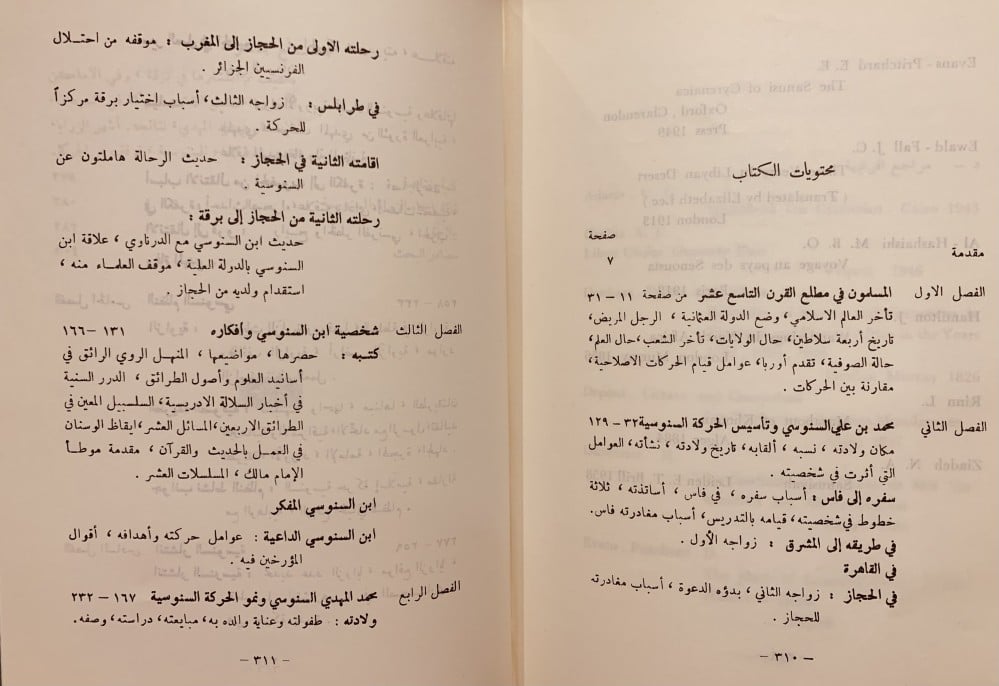 محتويات الكتاب
صفحة
مقدمة ٧
الفصل الاول المسلمون في مطلع القرن التاسع عشر من صفحة ١١ – ٣١
تأخر العالم الاسلامي، وضع الدولة العثمانية ، الرجل المريض،
تاريخ أربعة سلاطين، حال الولايات، تأخر الشعب،حال العلم،
حالة الصوفية، تقدم أوربا، عوامل قيام الحركات الاصلاحية،
مقارنة بين الحركات .
الفصل الثاني محمد بن علي السنوسي وتأسيس الحركة السنوسية ٣٢ – ١٢٩
مكان ولادته ، نسبه ، ألقابه، تاريخ ولادته ، نشأته، العوامل
التي أثرت في شخصيته .
سفره إلى فاس : أسباب سفره ، في فاس ، أساتذته ، ثلاثة
خطوط في شخصيته، قيامه بالتدريس، أسباب مغادرته فاس.
في طريقه إلى المشرق : زواجه الأول .
في القاهرة
في الحجاز : زواجه الثاني ، بدؤه الدعوة ، أسباب مغادرته
للحجاز .
– ٣١٠ –
رحلته الاولى من الحجاز إلى المغرب : موقفه من احتلال
الفرنسيين الجزائر .
في طرابلس : زواجه الثالث، أسباب اختيار برقة مركزاً
للحركة .
اقامته الثانية في الحجاز : حديث الرحالة هاملتون عن
السنوسية .
رحلته الثانية من الحجاز إلى برقة :
حديث ابن السنوسي مع الدرناوي ، علاقة ابن
السنوسي بالدولة العلية ، موقف العلماء منه ،
استقدام ولديه من الحجاز .
الفصل الثالث شخصية ابن السنوسي وأفكاره ١٣١ – ١٦٦
كتبه : حصرها ، مواضيعها ، المنهل الروي الرائق في
أسانيد العلوم وأصول الطرائق ، الدرر السنية
في أخبار السلالة الادريسية، السلسبيل المعين في
الطرائق الاربعين، المسائل العشر، ايقاظ الوسنان
في العمل بالحديث والقرآن ، مقدمة موطأ
الإمام مالك ، المسلسلات العشر .
ابن السنوسي المفكر
ابن السنوسي الداعية : عوامل حركته وأهدافه ، أقوال
المؤرخين فيه .
الفصل الرابع محمد المهدي السنوسي ونمو الحركة السنوسية ١٦٧ – ٢٣٢
ولادته : طفولته وعناية والده به، مبايعته، دراسته، وصفه.
– ٣١١ –